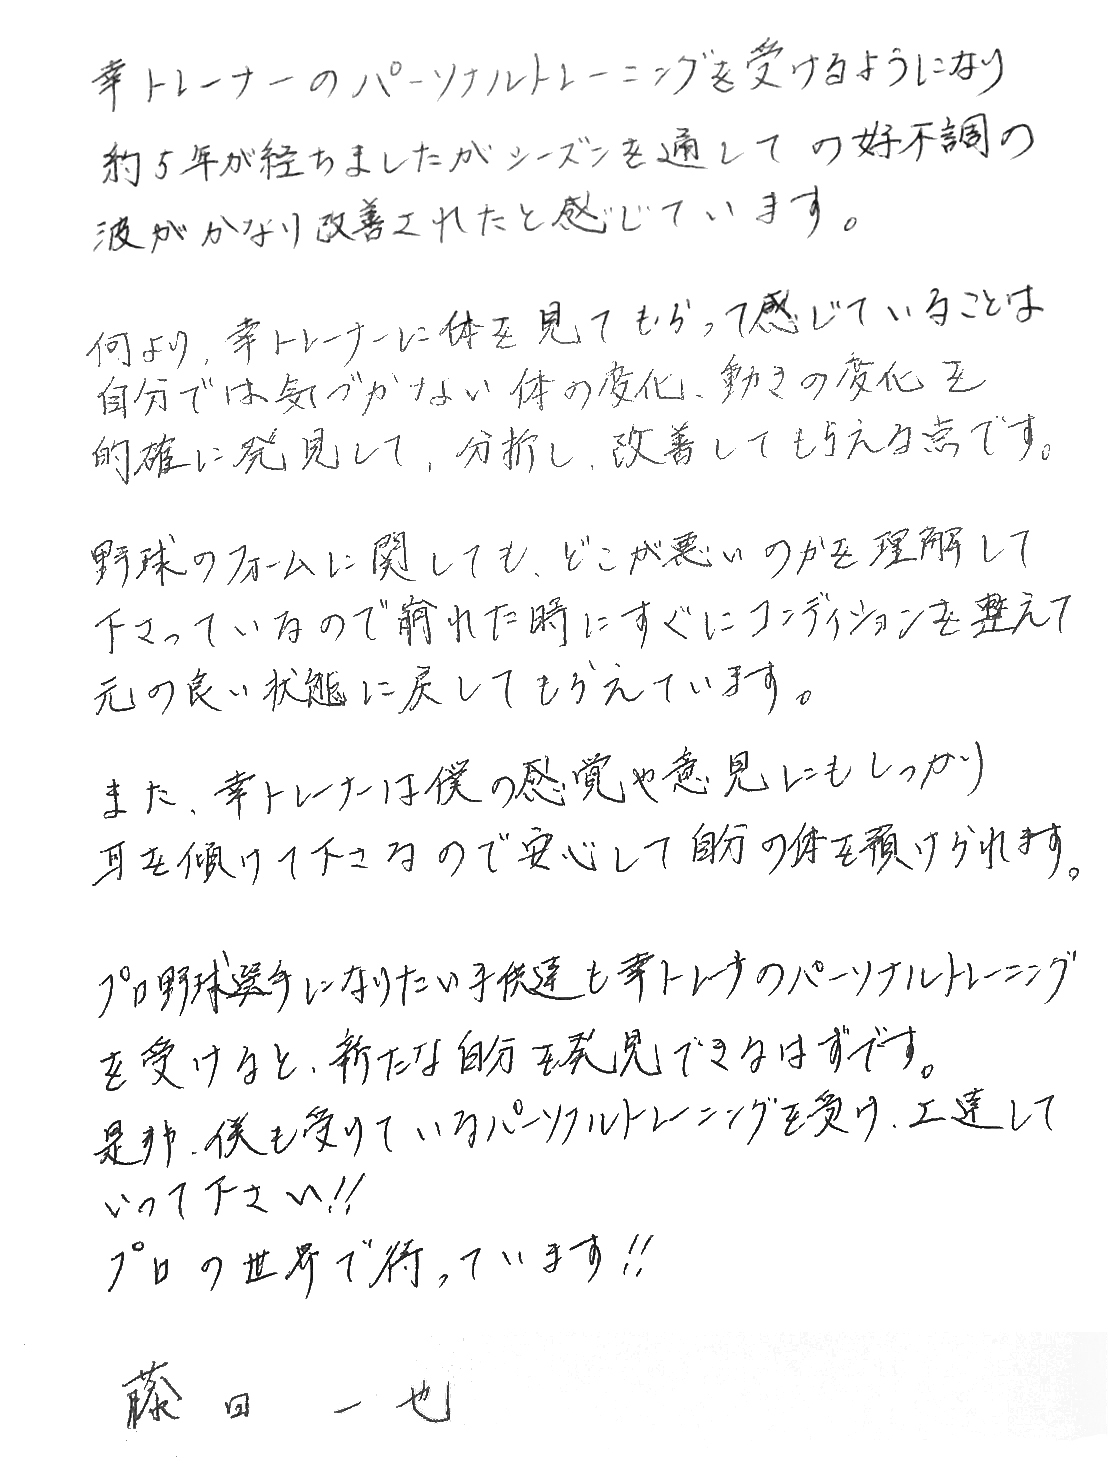 幸トレーナーのパーソナルトレーニングを受けるようになり
約5年が経ちましたがシーズンを通しての好不調の
波がかなり改善されたと感じています。
何より、幸トレーナーに体を見てもらって感じていることは
自分では気づかない体の変化、動きの変化を
的確に発見して、分折し、改善してもらえる点です。
野球のフォームに関しても、どこが悪いのかを理解して
下さっているので崩れた時にすぐにコンディションを整えて
元の良い状態に戻してもらえています。
また、幸トレーナーは僕の感覚や意見にもしっかり
耳を傾けて下さるので安心して自分の体を預けられます。
プロ野球選手になりたい子供達も幸トレーナのパーソナルトレーニング
を受けると、新たな自分を発見できるはずです。
是非、僕も受けているパーソナルトレーニングを受け、上達して
いって下さい!!
プロの世界で待っています!!
藤田一也